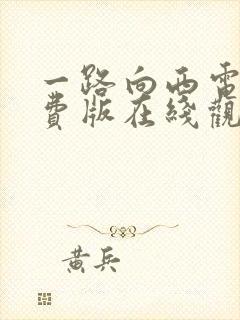 一路向西電
費版在綫觀
黃兵